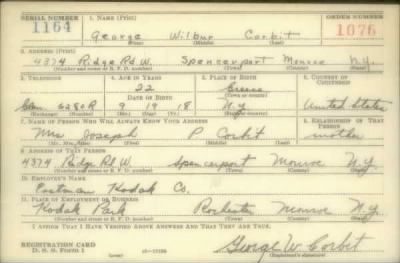 SERIAL NUMBER 1. NAME (Print) ORDER NUMBER
1164 George Wilbur Corbit 1076
(First) (Middle) (Last)
2. ADDRESS (Print)
4374 Ridge Rd W. Spencerport Monroe N.Y.
(Number and street or R. F. D. number) (Town) (County) (State)
3. TELEPHONE 4. AGE IN YEARS 5. PLACE OF BIRTH 6. COUNTRY OF CITIZENSHIP
22 Greece
DATE OF BIRTH (Town or county)
6280R 9 19 18 N.Y. United States
(Exchange) (Number) (Mo.) (Day) (Yr.) (State or country)
7. NAME OF PERSON WHO WILL ALWAYS KNOW YOUR ADDRESS 8. RELATIONSHIP OF THAT PERSON
Mrs Joseph P Corbit mother
(Mr., Mrs., Miss) (First) (Middle) (Last)
9. ADDRESS OF THAT PERSON
4374 Ridge Rd W. Spencerport Monroe N.Y.
(Number and street or R. F. D. number) (Town) (County) (State)
10. EMPLOYER'S NAME
Eastman Kodak Co.
11. PLACE OF EMPLOYMENT OR BUSINESS
Kodak Park Rochester Monroe N.Y.
(Number and street or R. F. D. number) (Town) (County) (State)
I AFFIRM THAT I HAVE VERIFIED ABOVE ANSWERS AND THAT THEY ARE TRUE.
REGISTRATION CARD George W. Corbit
D. S. S. Form 1 (Registrant's signature)